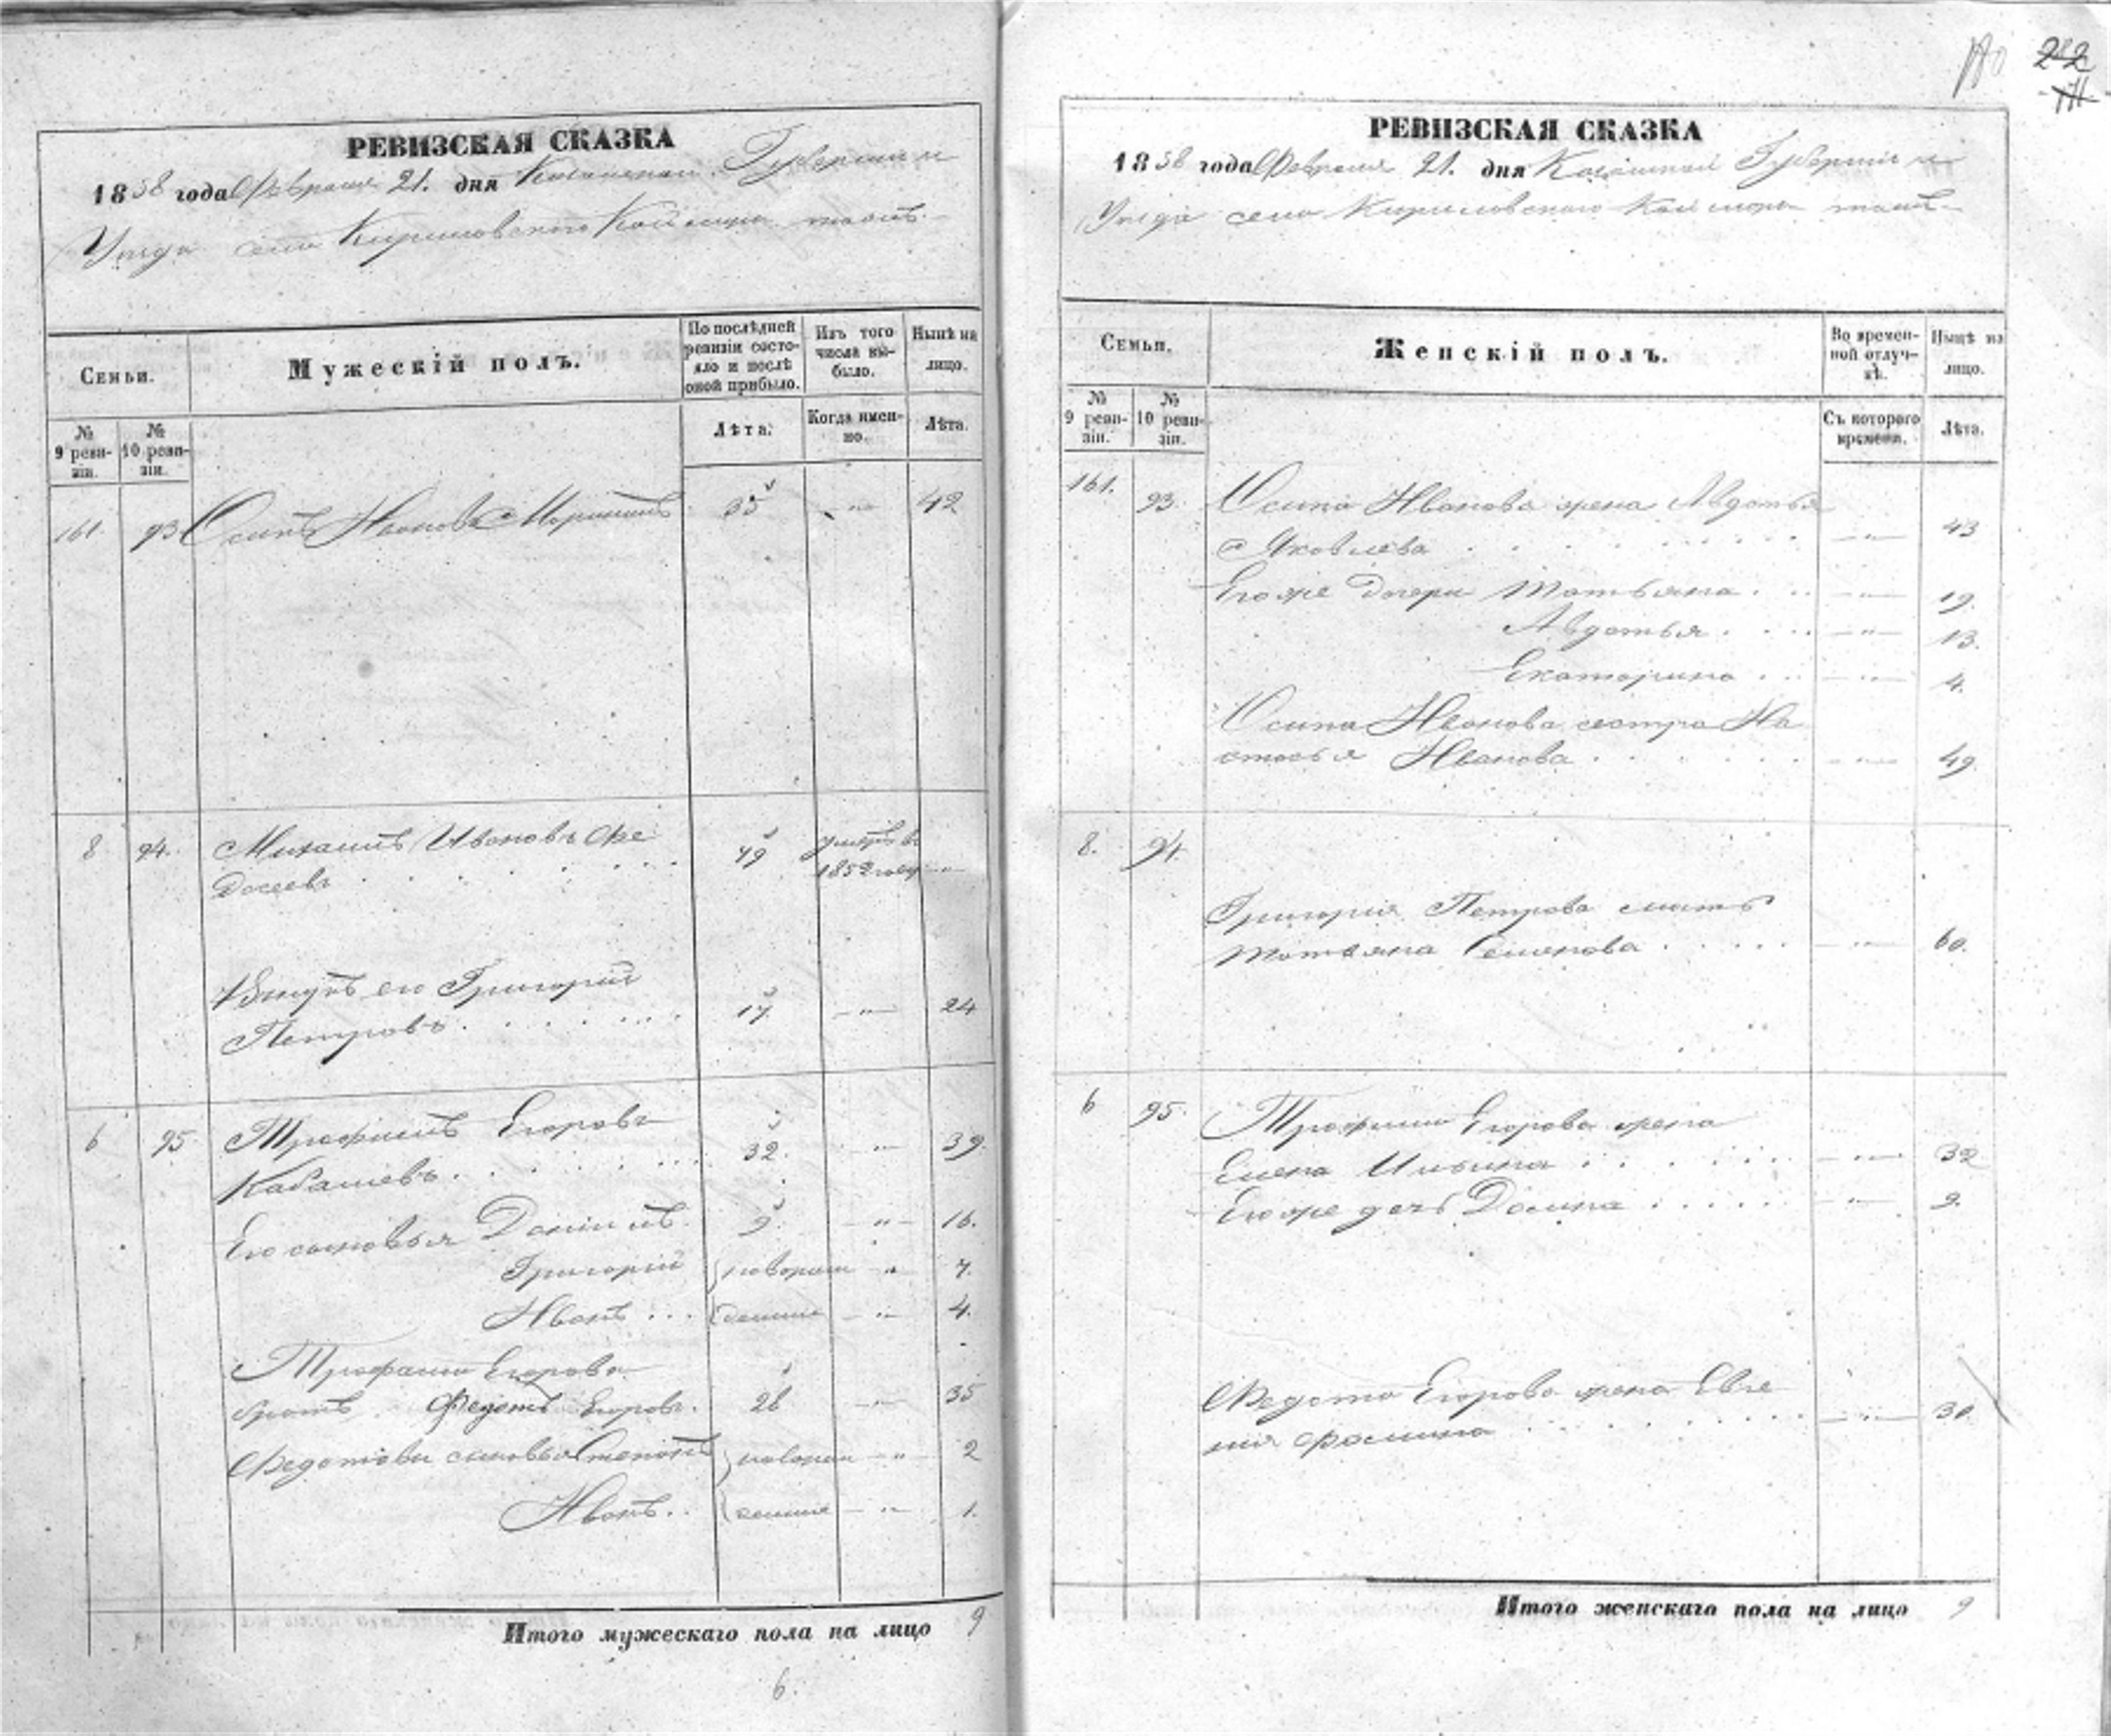 222
РЕВИЗСКАЯ СКАЗКА
1858 года Февраля 21. дня Казанской Губернiи и
Уезда села Кириловскаго Каймара тожъ
Семьи.
Мужескiй полъ.
По послѣдней ревизiи состояло и послѣ оной прибыло.
Изъ того числа выбыло.
Нынѣ на лицо.
№ 9 ревизiи.
№ 10 ревизiи.
Лѣта.
Когда именно.
Лѣта.
161. 93 Осипъ Ивановъ 35 " 42
8 94. Михаилъ Ивановъ Ѳе
досеевъ 49 умеръ въ 1852 году "
Внукъ его Григорiй
Петровъ 17 " 24
6 95 Трофимъ Егоровъ
Кабашевъ 32. " 39.
Его сыновья Данiилъ 9. " 16.
Григорiй новорож " 7.
Иванъ денные " 4.
Трофима Егорова
братъ Ѳедотъ Егоровъ. 28 " 35
Ѳедотовы сыновья Степанъ новорож " 2
Иванъ денные " 1.
Итого мужескаго пола на лицо 9
6.
РЕВИЗСКАЯ СКАЗКА
1858 года Февраля 21. дня Казанской Губернiи и
Уезда села Кириловскаго Каймара тожъ
Семьи.
Женскiй полъ.
Во временной отлучкѣ.
Нынѣ на лицо.
№ 9 ревизiи.
№ 10 ревизiи.
Съ котораго времени.
Лѣта.
161. 93. Осипа Иванова жена Авдотья
Яковлева " 43
Его же дочери Татьяна " 19.
Авдотья " 13.
Екатерина " 4.
Осипа Иванова сестра На
стасья Иванова " 49.
8. 94.
Григорiя Петрова мать
Татьяна Семенова " 60.
6 95. Трофима Егорова жена
Елена Ильина " 32
Его же дочь Домна " 9.
Ѳедота Егорова жена Евге
нiя Фомина " 30.
Итого женскаго пола на лицо 9